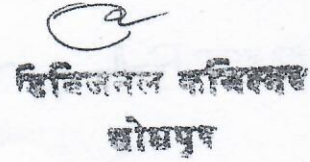 डिविजनल कमिश्नर
जोधपुर